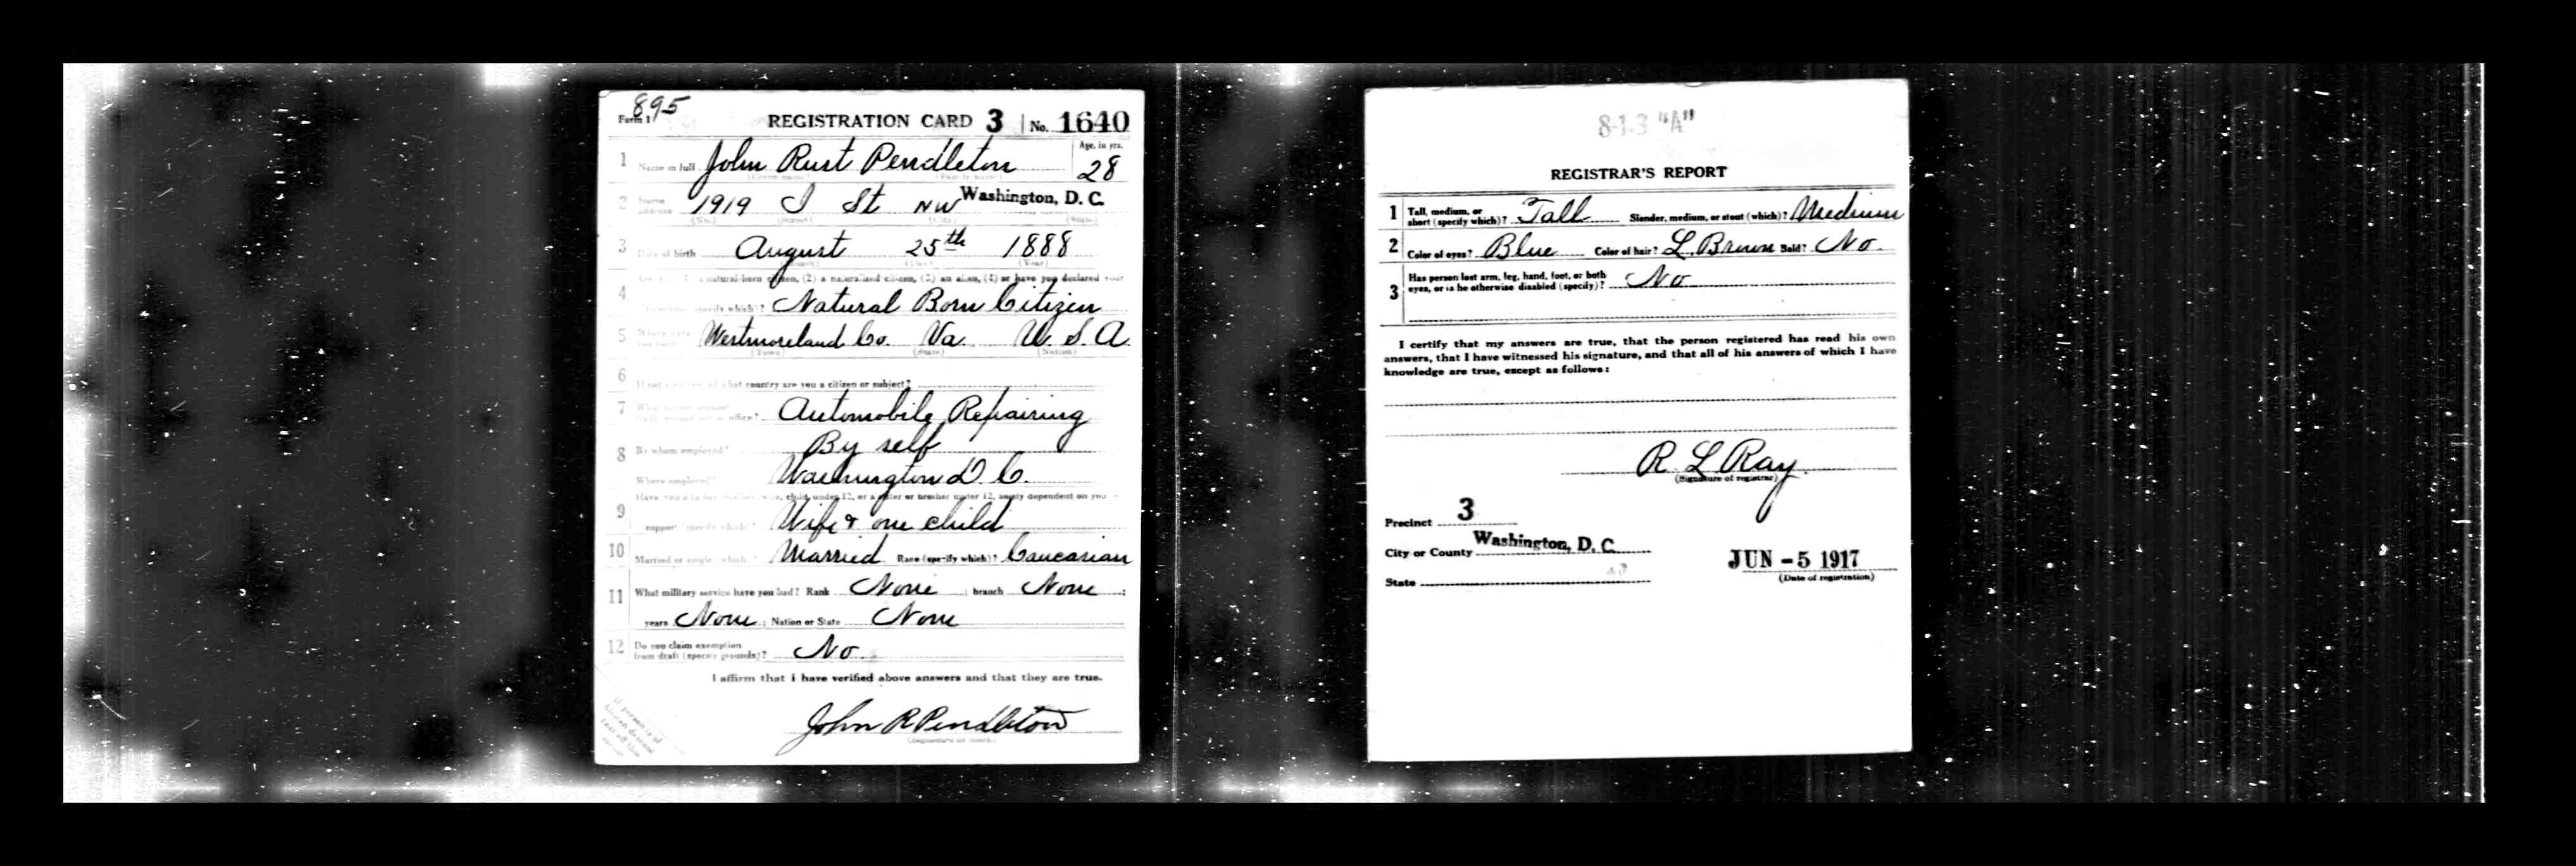 895
Form 1 REGISTRATION CARD 3 No. 1640
1 Name in full John Rust Pendleton Age, in yrs. 28
(Given name) (Family name)
2 Home address 1919 I St NW Washington, D. C.
(No.) (Street) (City) (State)
3 Date of birth August 25th 1888
(Month) (Day) (Year)
4 Are you (1) a natural-born citizen, (2) a naturalized citizen, (3) an alien, (4) or have you declared your
intention (specify which)? Natural Born Citizen
5 Where were you born? Westmoreland Co. Va. U. S. A.
(Town) (State) (Nation)
6 If not a citizen, of what country are you a citizen or subject?
7 What is your present trade, occupation, or office? Automobile Repairing
8 By whom employed? By self
Where employed? Washington D. C.
9 Have you a father, mother, wife, child under 12, or a sister or brother under 12, solely dependent on you for
support (specify which)? Wife & one child
10 Married or single (which)? Married Race (specify which)? Caucasian
11 What military service have you had? Rank None ; branch None ;
years None ; Nation or State None
12 Do you claim exemption
from draft (specify grounds)? No.
I affirm that I have verified above answers and that they are true.
John R Pendleton
(Signature or mark)
If person is of
African descent
tear off this
corner
8-1-3 "A"
REGISTRAR'S REPORT
1 Tall, medium, or
short (specify which)? Tall Slender, medium, or stout (which)? Medium
2 Color of eyes? Blue Color of hair? L. Brown Bald? No.
3 Has person lost arm, leg, hand, foot, or both
eyes, or is he otherwise disabled (specify)? No
I certify that my answers are true, that the person registered has read his own
answers, that I have witnessed his signature, and that all of his answers of which I have
knowledge are true, except as follows:
R. L Ray.
(Signature of registrar)
Precinct 3
City or County Washington, D. C.
State
JUN - 5 1917
(Date of registration)